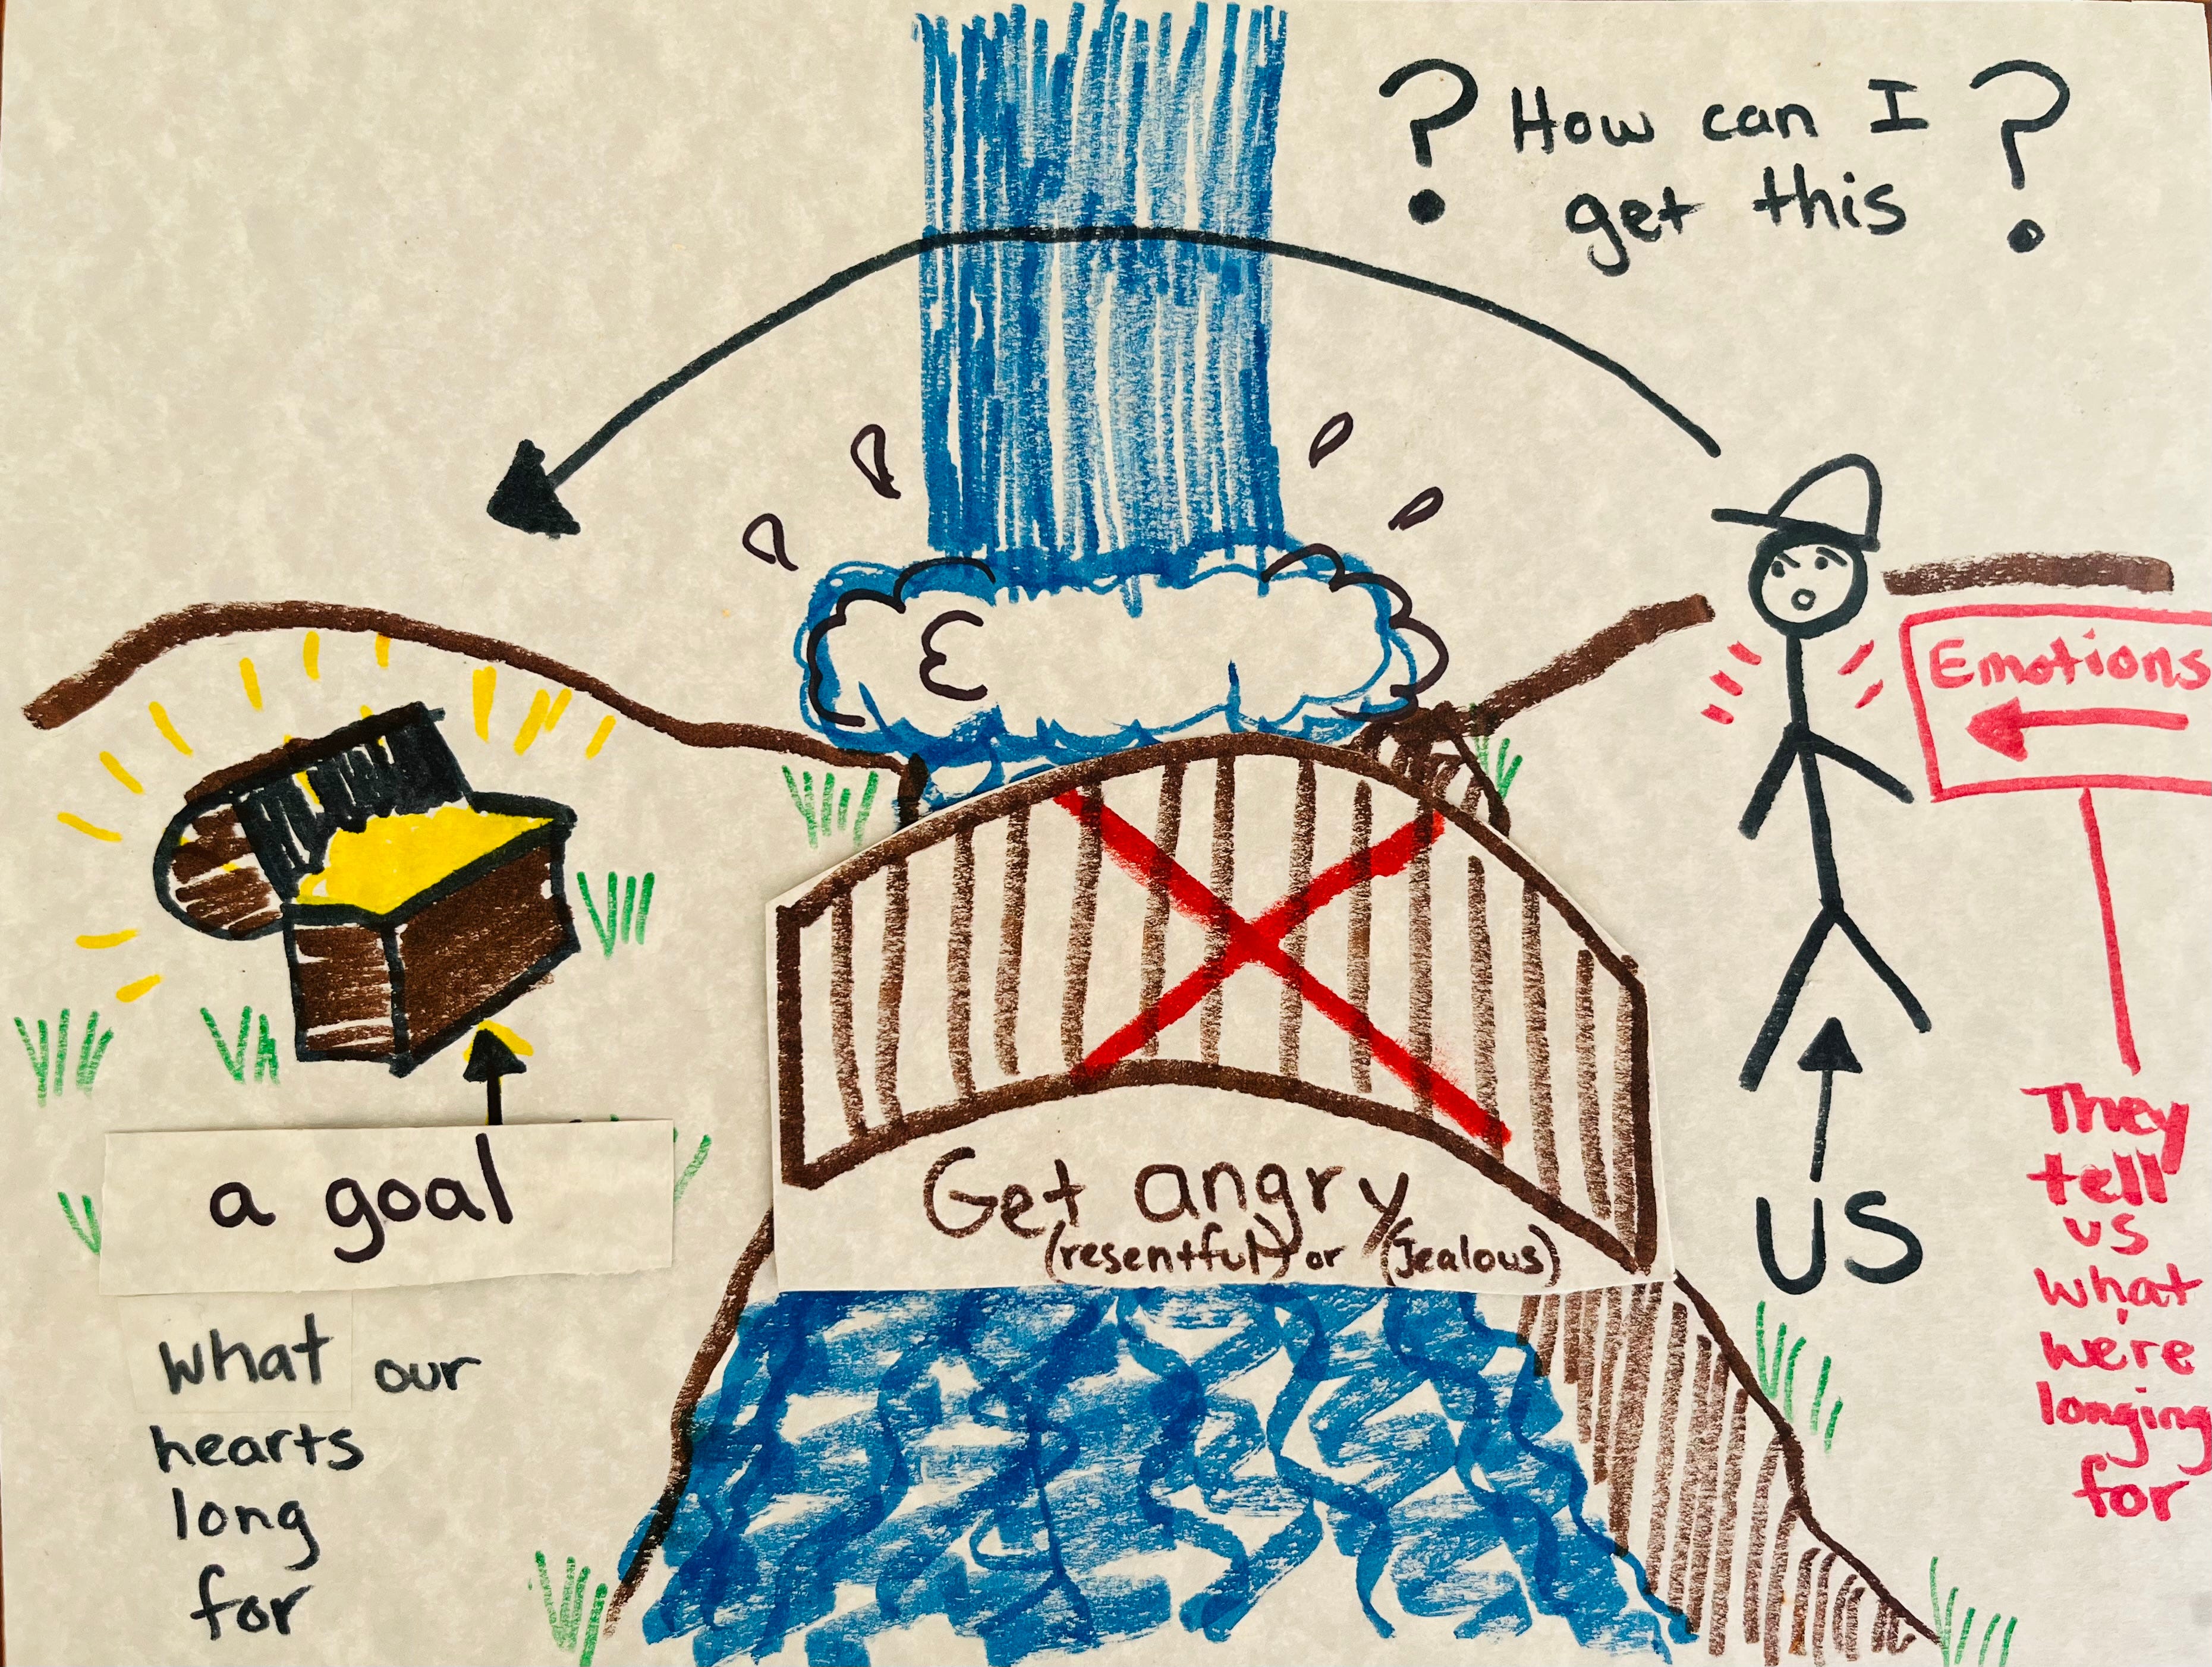 ? How can I ?
get this
Emotions
a goal
what our
hearts
long
for
Get angry
(resentful) or (Jealous)
US
They
tell
us
what
we're
longing
for